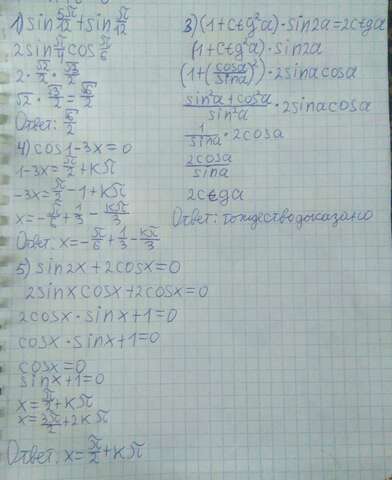 1) sin 5π/12 + sin π/12
2 sin π/4 cos π/6
2 · √2/2 · √3/2
√2 · √3/2 = √6/2
Ответ: √6/2
4) cos 1-3x = 0
1-3x = π/2 + kπ
-3x = π/2 - 1 + kπ
x = -π/6 + 1/3 - kπ/3
Ответ: x = -π/6 + 1/3 - kπ/3
5) sin2x + 2cosx = 0
2sinxcosx + 2cosx = 0
2cosx · sinx + 1 = 0
cosx · sinx + 1 = 0
cosx = 0
sinx + 1 = 0
x = π/2 + kπ
x = 3π/2 + 2kπ
Ответ: x = π/2 + kπ
3) (1 + ctg²a) · sin2a = 2ctga
(1 + ctg²a) · sin2a
(1 + (cosa/sina)²) · 2sinacosa
sin²a + cos²a/sin²a · 2sinacosa
1/sina · 2cosa
2cosa/sina
2ctga
Ответ: тождество доказано